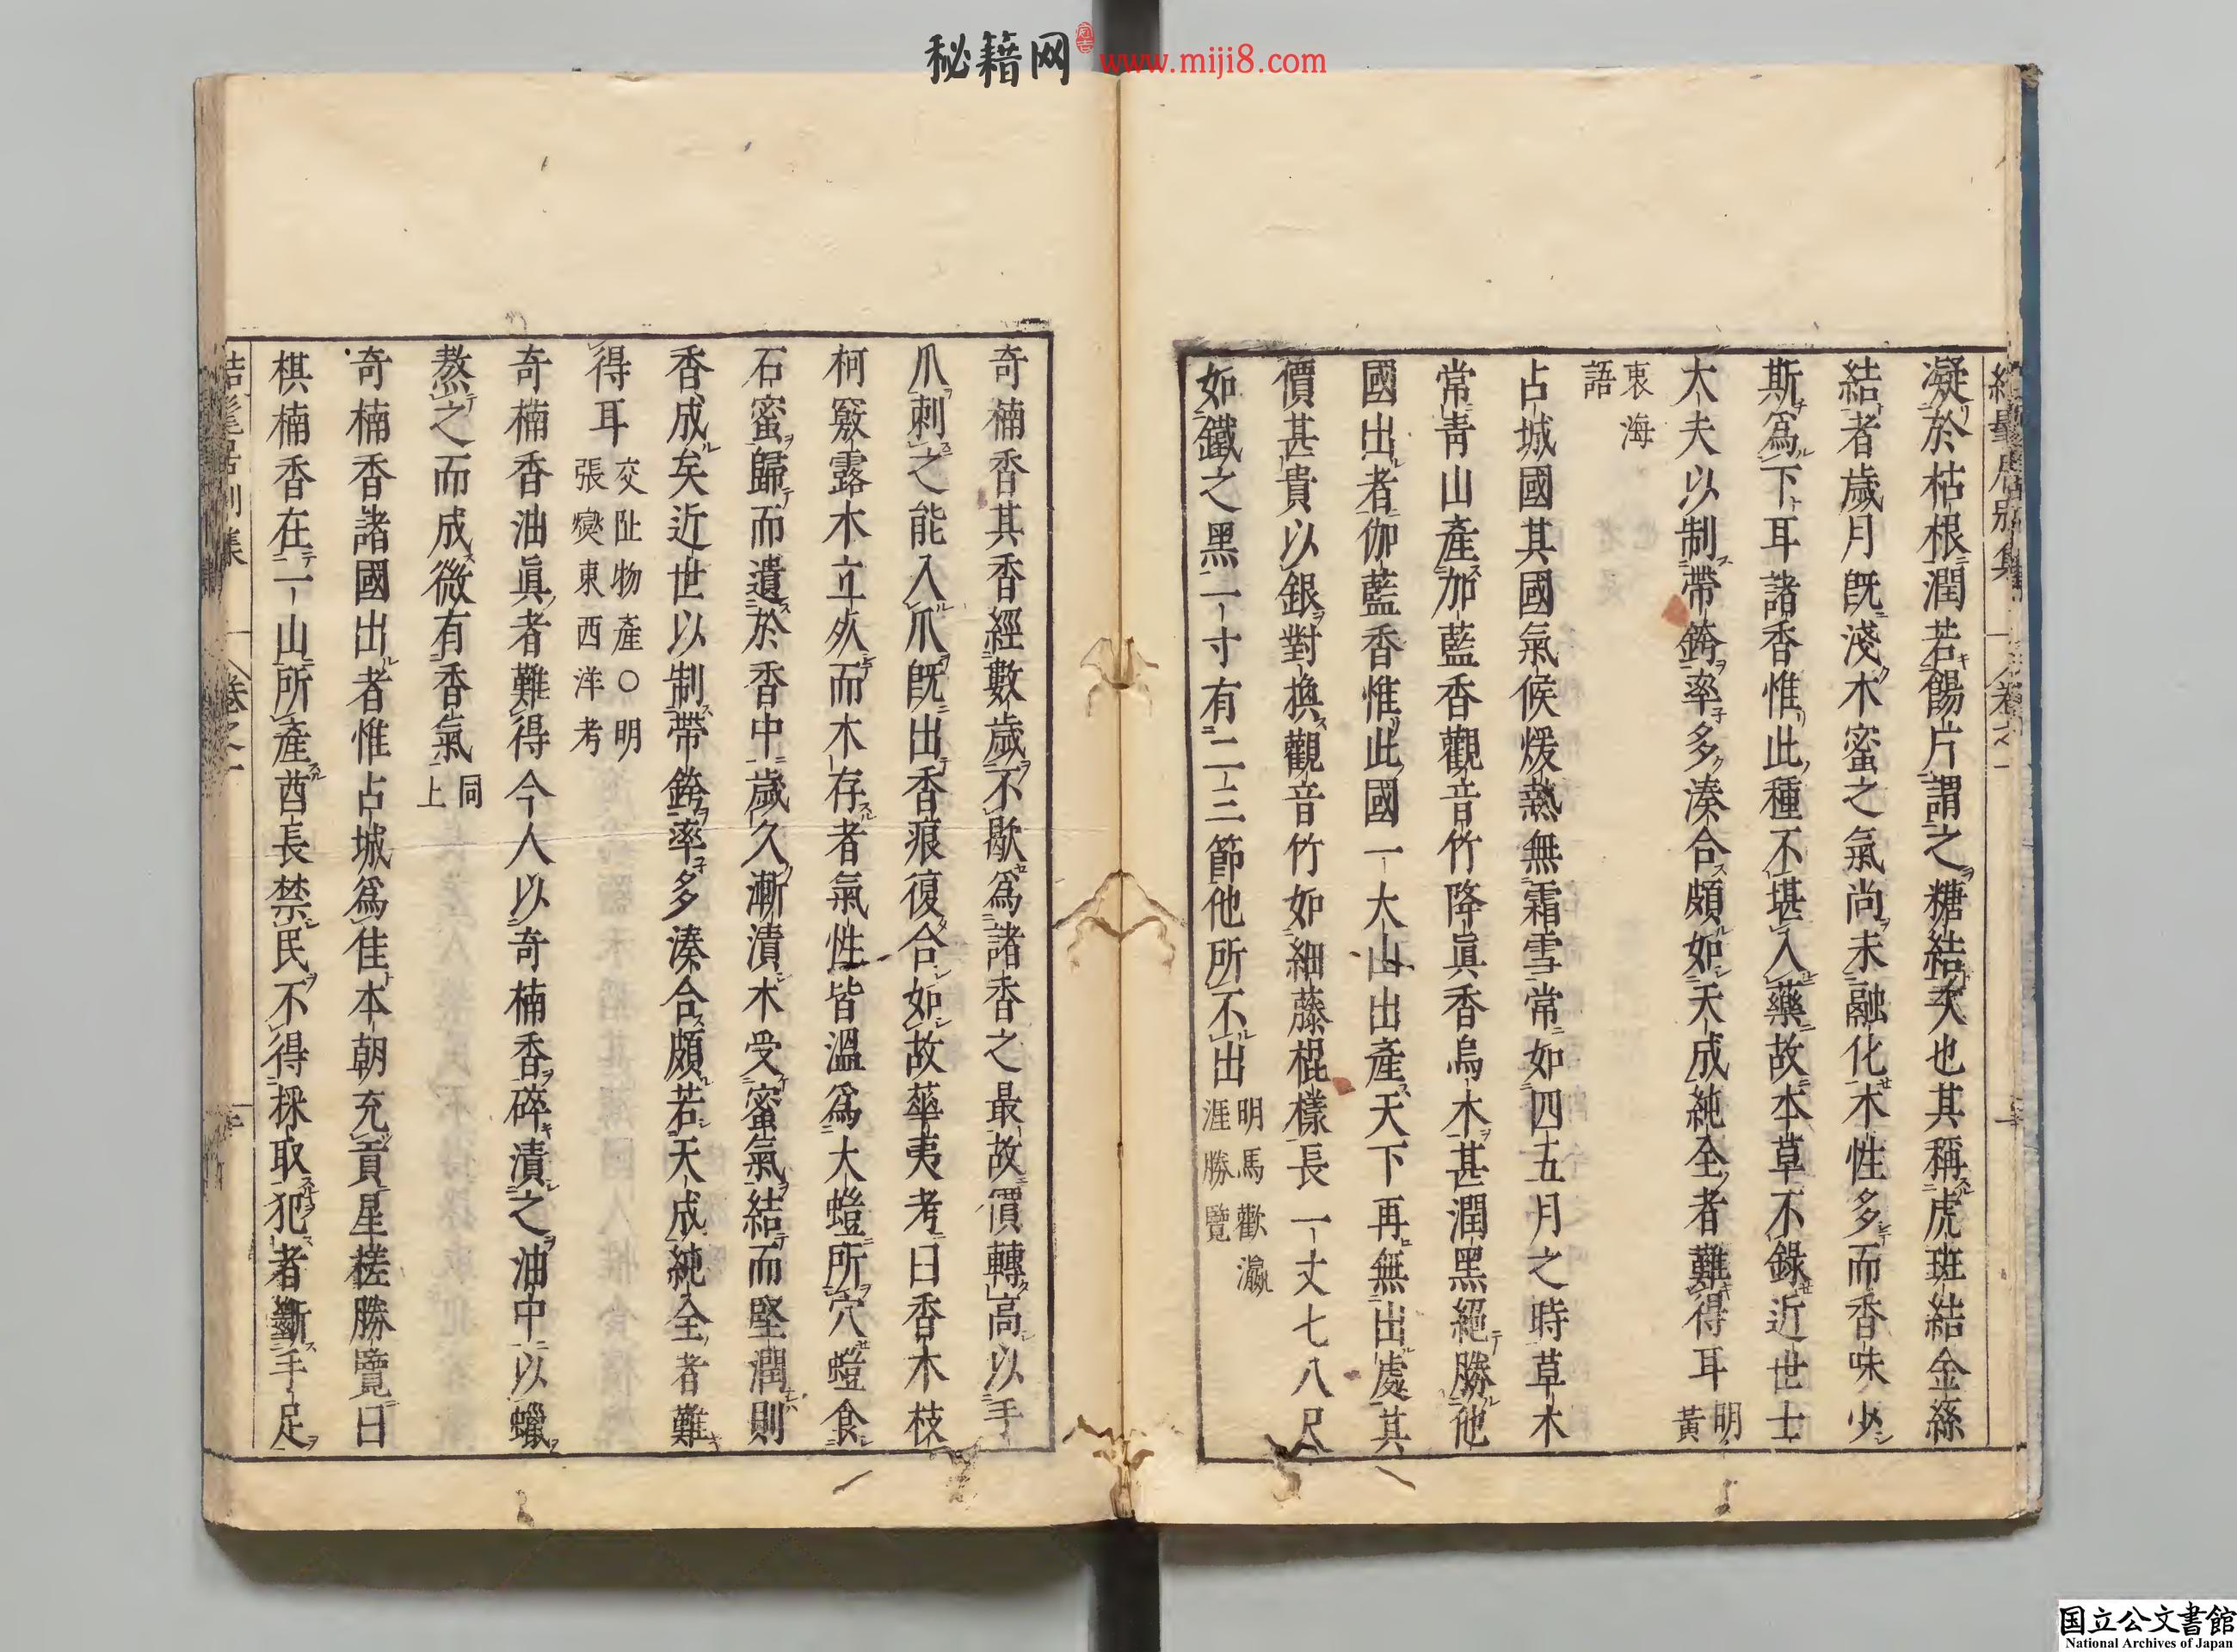 秘籍网 www.miji8.com
凝於枯根潤若餳片謂之糖結次也其稱虎斑結金絲
結者歲月既淺木蜜之氣尚未融化木性多而香味少
斯爲下耳諸香惟此種不堪入藥故本草不錄近世士
大夫以制帶銙率多湊合頗如天成純全者難得耳 明黃
衷海語
占城國其國氣候煖熱無霜雪常如四五月之時草木
常靑山產加藍香觀音竹降眞香烏木甚潤黑絕勝他
國出者伽藍香惟此國一大山出產天下再無出處其
價甚貴以銀對換觀音竹如細藤棍樣長一丈七八尺
如鐵之黑一寸有二三節他所不出 明馬歡瀛涯勝覽
奇楠香其香經數歲不歇爲諸香之最故價轉高以手
爪刺之能入爪既出香痕復合如故華夷考曰香木枝
柯竅露木立歿而木存者氣性皆溫爲大螘所穴螘食
石蜜歸而遺於香中歲久漸漬木受蜜氣結而堅潤則
香成矣近世以制帶銙率多湊合頗若天成純全者難
得耳 交阯物產〇明張燮東西洋考
奇楠香油眞者難得今人以奇楠香碎漬之油中以蠟
熬之而成微有香氣 同上
奇楠香諸國出者惟占城爲佳本朝充貢星槎勝覽曰
棋楠香在一山所產酋長禁民不得採取犯者斷手足
国立公文書館
National Archives of Japan